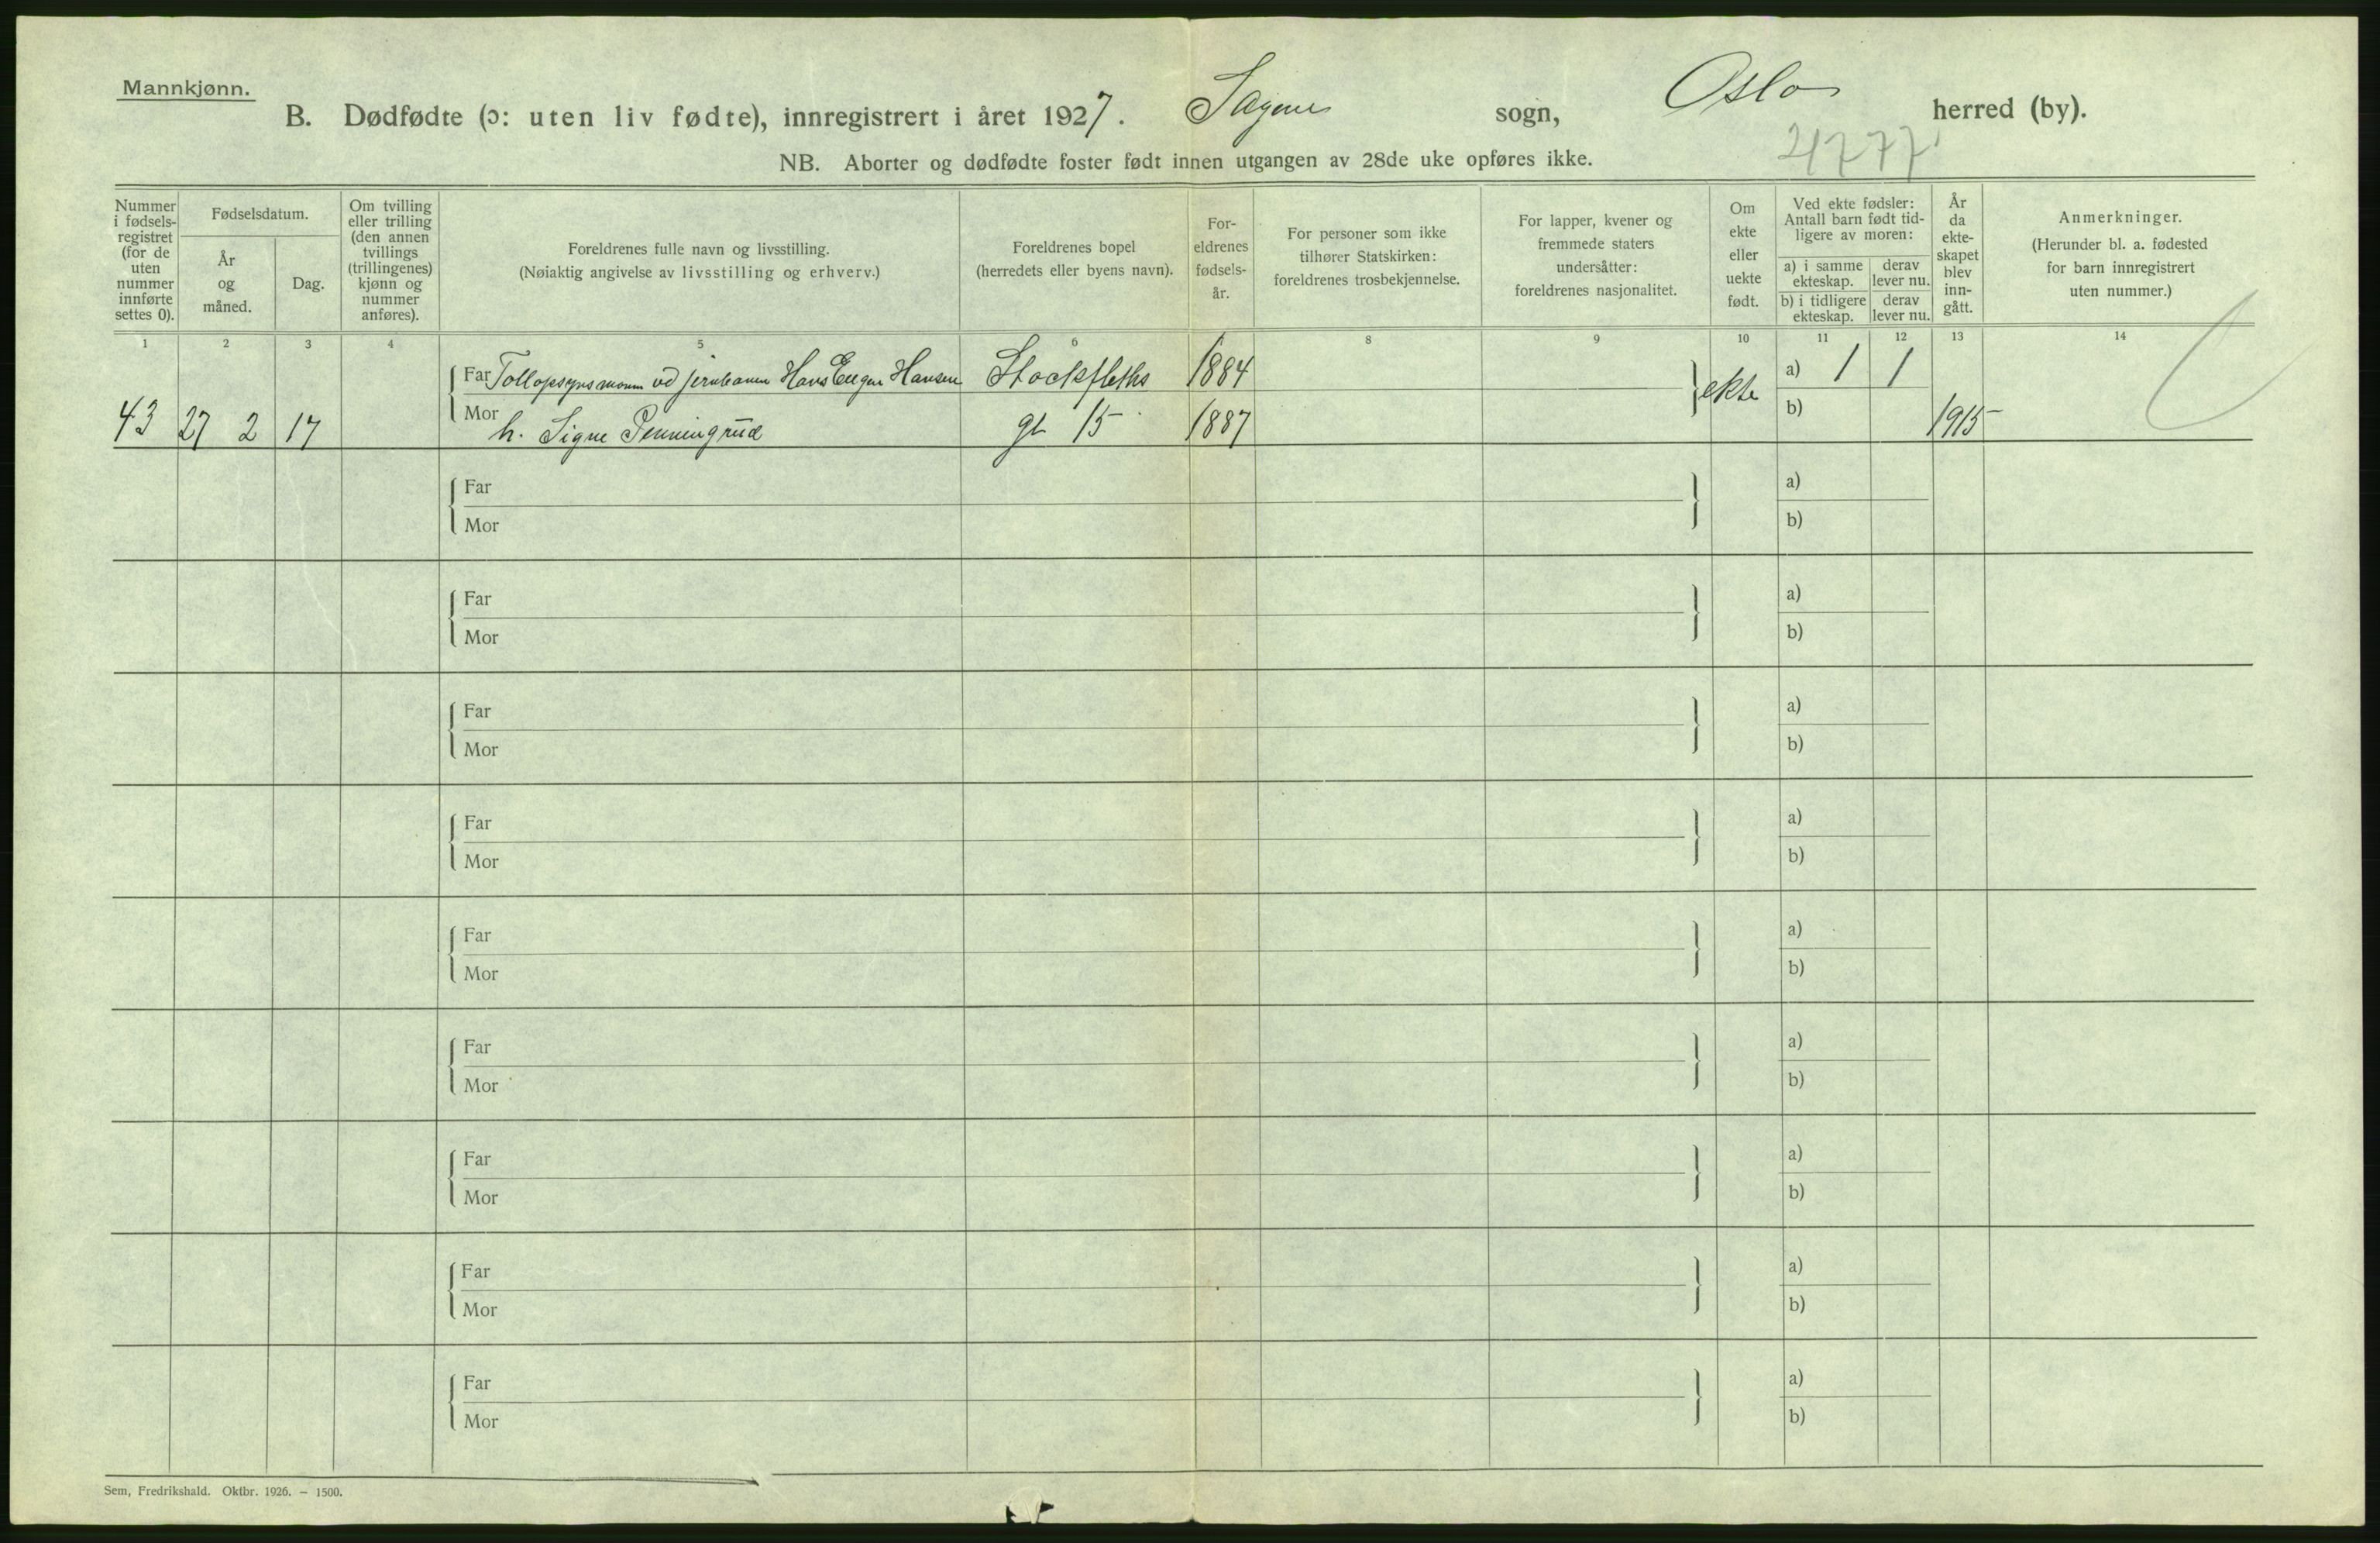 Mannkjønn.
B. Dødfødte (ɔ: uten liv fødte), innregistrert i året 1927. Sagene sogn, Oslo herred (by).
4777
NB. Aborter og dødfødte foster født innen utgangen av 28de uke opføres ikke.
Nummer i fødsels-registret (for de uten nummer innførte settes 0).
Fødselsdatum.
År og måned.
Dag.
Om tvilling eller trilling (den annen tvillings (trillingenes) kjønn og nummer anføres).
Foreldrenes fulle navn og livsstilling.
(Nøiaktig angivelse av livsstilling og erhverv.)
Foreldrenes bopel
(herredets eller byens navn).
For-eldrenes fødsels-år.
For personer som ikke tilhører Statskirken: foreldrenes trosbekjennelse.
For lapper, kvener og fremmede staters undersåtter: foreldrenes nasjonalitet.
Om ekte eller uekte født.
Ved ekte fødsler: Antall barn født tid-ligere av moren:
a) i samme ekteskap. derav lever nu.
b) i tidligere ekteskap. derav lever nu.
År da ekte-skapet blev inn-gått.
Anmerkninger.
(Herunder bl. a. fødested for barn innregistrert uten nummer.)
1 2 3 4 5 6 8 9 10 11 12 13 14
Far Tollopsynsmann ved jernbanen Hans Eugen Hansen Stockfleths 1884 ekte a) 1 1
43 27 2 17 Mor h. Signe Penningrud gt 15 1887 b) 1915
Far a)
Mor b)
Far a)
Mor b)
Far a)
Mor b)
Far a)
Mor b)
Far a)
Mor b)
Far a)
Mor b)
Far a)
Mor b)
Far a)
Mor b)
Far a)
Mor b)
Sem, Fredrikshald. Oktbr. 1926. – 1500.